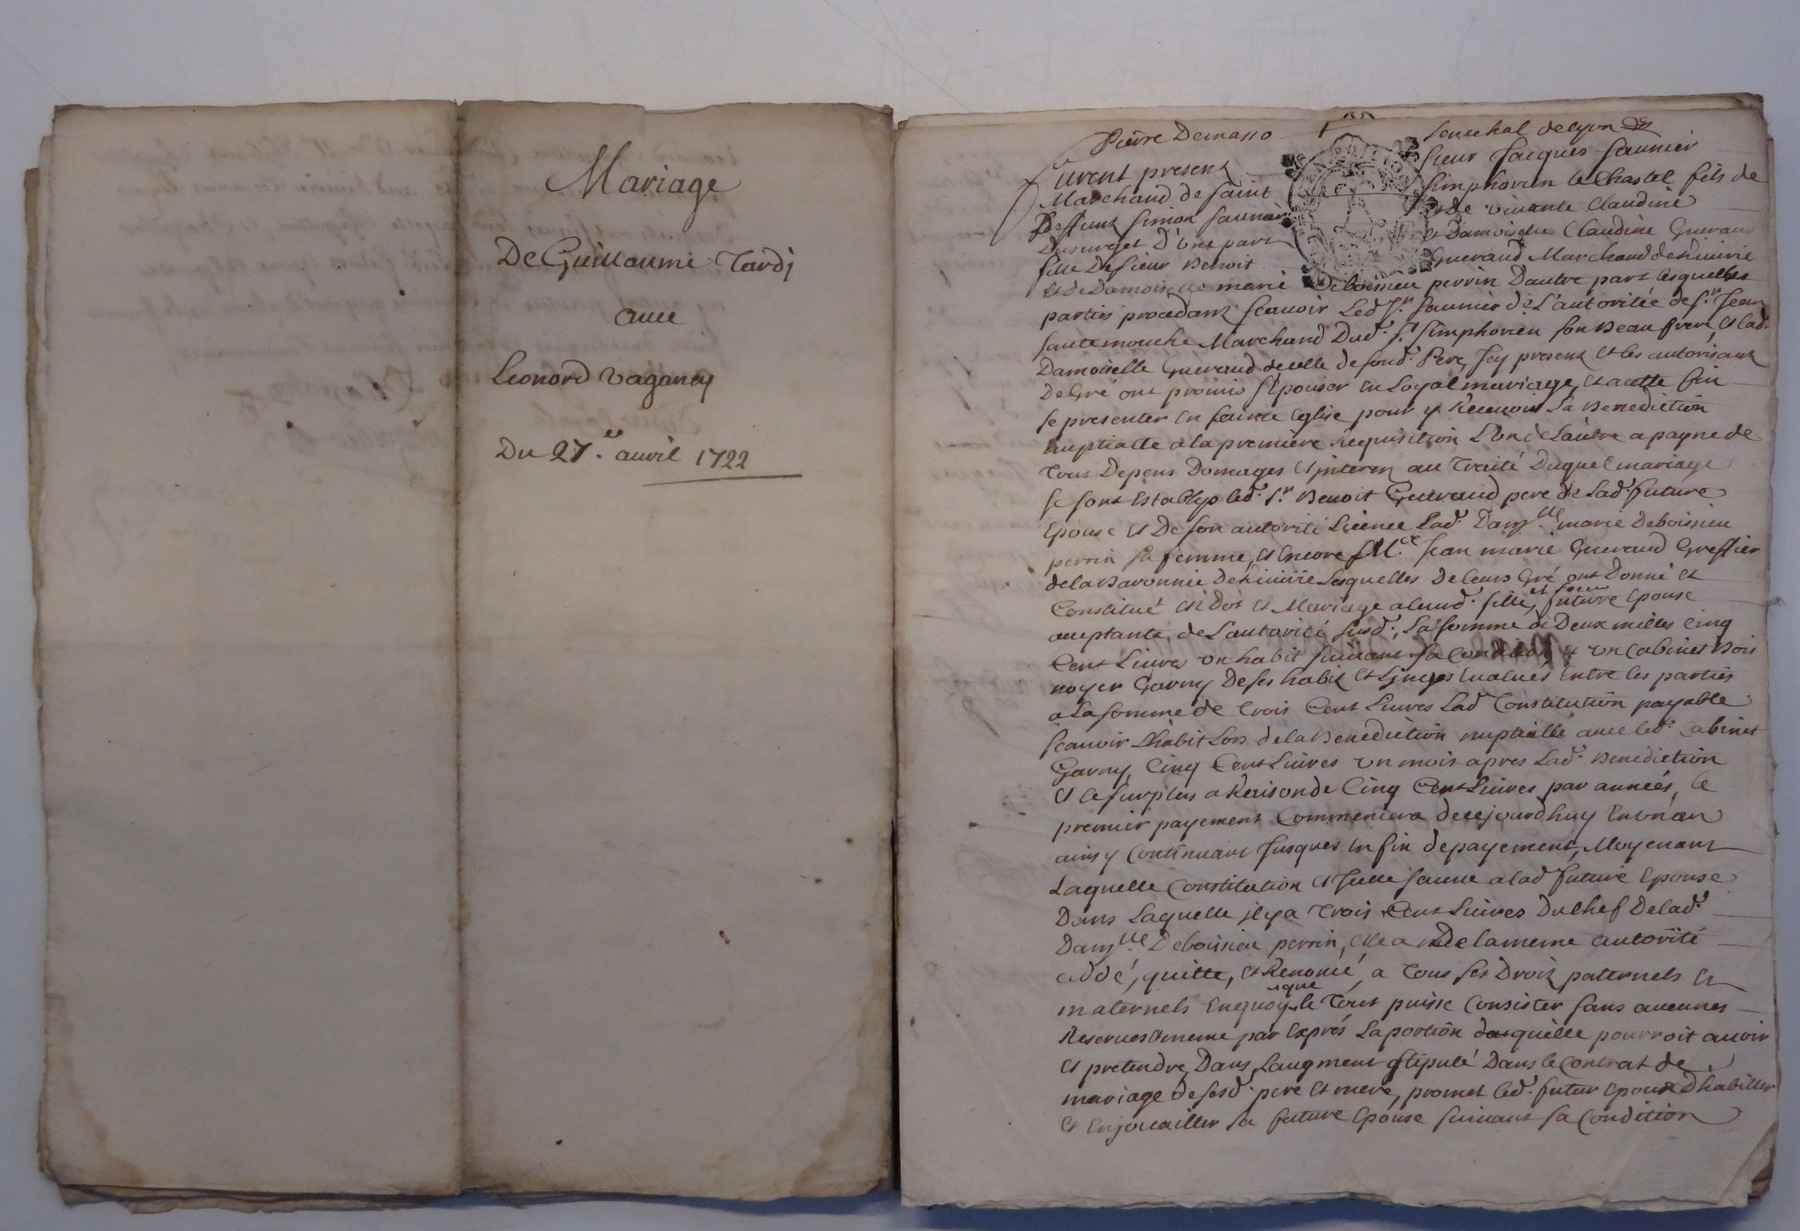 Mariage
De Guillaume Tardi
auec
Leonord Vaganey
Du 27.e auril 1722
Pierre Demasso senechal de lyon
furent present sieur Jacques saunier
Marchand de saint simphorien le Chastel fils de
Deffunt simon saunier et de viuante Claudine
D'une part et Damoiselle Claudine Gueraud
fille de sieur Benoit Gueraud Marchand de Riuirie
et de Damoiselle marie Deboissieu perrin D'autre part lesquelles
parties procedant scauoir led. sr. saunier de L'autorité de sr. Jean
sautemouche Marchand Dud. st. simphorien son Beau frere, et lad.
Damoiselle Gueraud de celle de sond. Pere, Jcy present et les autorisant
De Gré ont promis s'Epouser en Loyal mariage, et a cette fin
se presenter en sainte Eglise pour y Receuoir La Benediction
nuptialle a la premiere Requisition L'un de L'autre a payne de
Tous Depens Domages et interest au Traité Duquel mariage
se sont Establys led. sr. Benoit Gueraud pere de Lad. future
Epouse et De son autorité Licence Lad. Damlle. marie Deboissieu
perrin sa femme, et encore Me. Jean marie Gueraud Greffier
de la Baronnie de Riuirie Lesquelles De leurs Gré ont Donné et
Constitué en Dot et Mariage a leurd. fille, et soeur future Epouse
acceptante, de L'autorité susd., La somme de Deux milles Cinq
Cent Liures un habit suiuant sa Condition et un Cabinet Bois
noyer Garny De ses habits et Linges Eualués Entre les parties
a La somme de Trois Cent Liures Lad. Constitution payable
scauoir L'habit Lors de la Benediction nuptialle auec led. Cabinet
Garny, Cinq Cent Liures un mois apres Lad. Benediction
et le surplus a Raison de Cinq Cent Liures par années, le
premier payement Commencera de cejourdhuy En un an
ainsy Continuant Jusques en fin de payement, Moyenant
Laquelle Constitution et Jcelle sauue a lad. future Epouse
Dans Laquelle il y a Trois Cent Liures Du Chef De lad.
Damlle. Deboissieu perrin, elle a De la meme autorité
cedé, quitte, et Renoncé, a Tous ses Droix paternels et
maternels En quoy que le Tout puisse Consister sans aucunes
Reserues et meme par Exprés La portion quelle pourroit auoir
et pretendre, Dans L'augment stipulé Dans le Contrat de
mariage de sesd. pere et mere, promet led. futur Epoux D'habiller
et Enjouailler sa future Epouse suiuant sa Condition